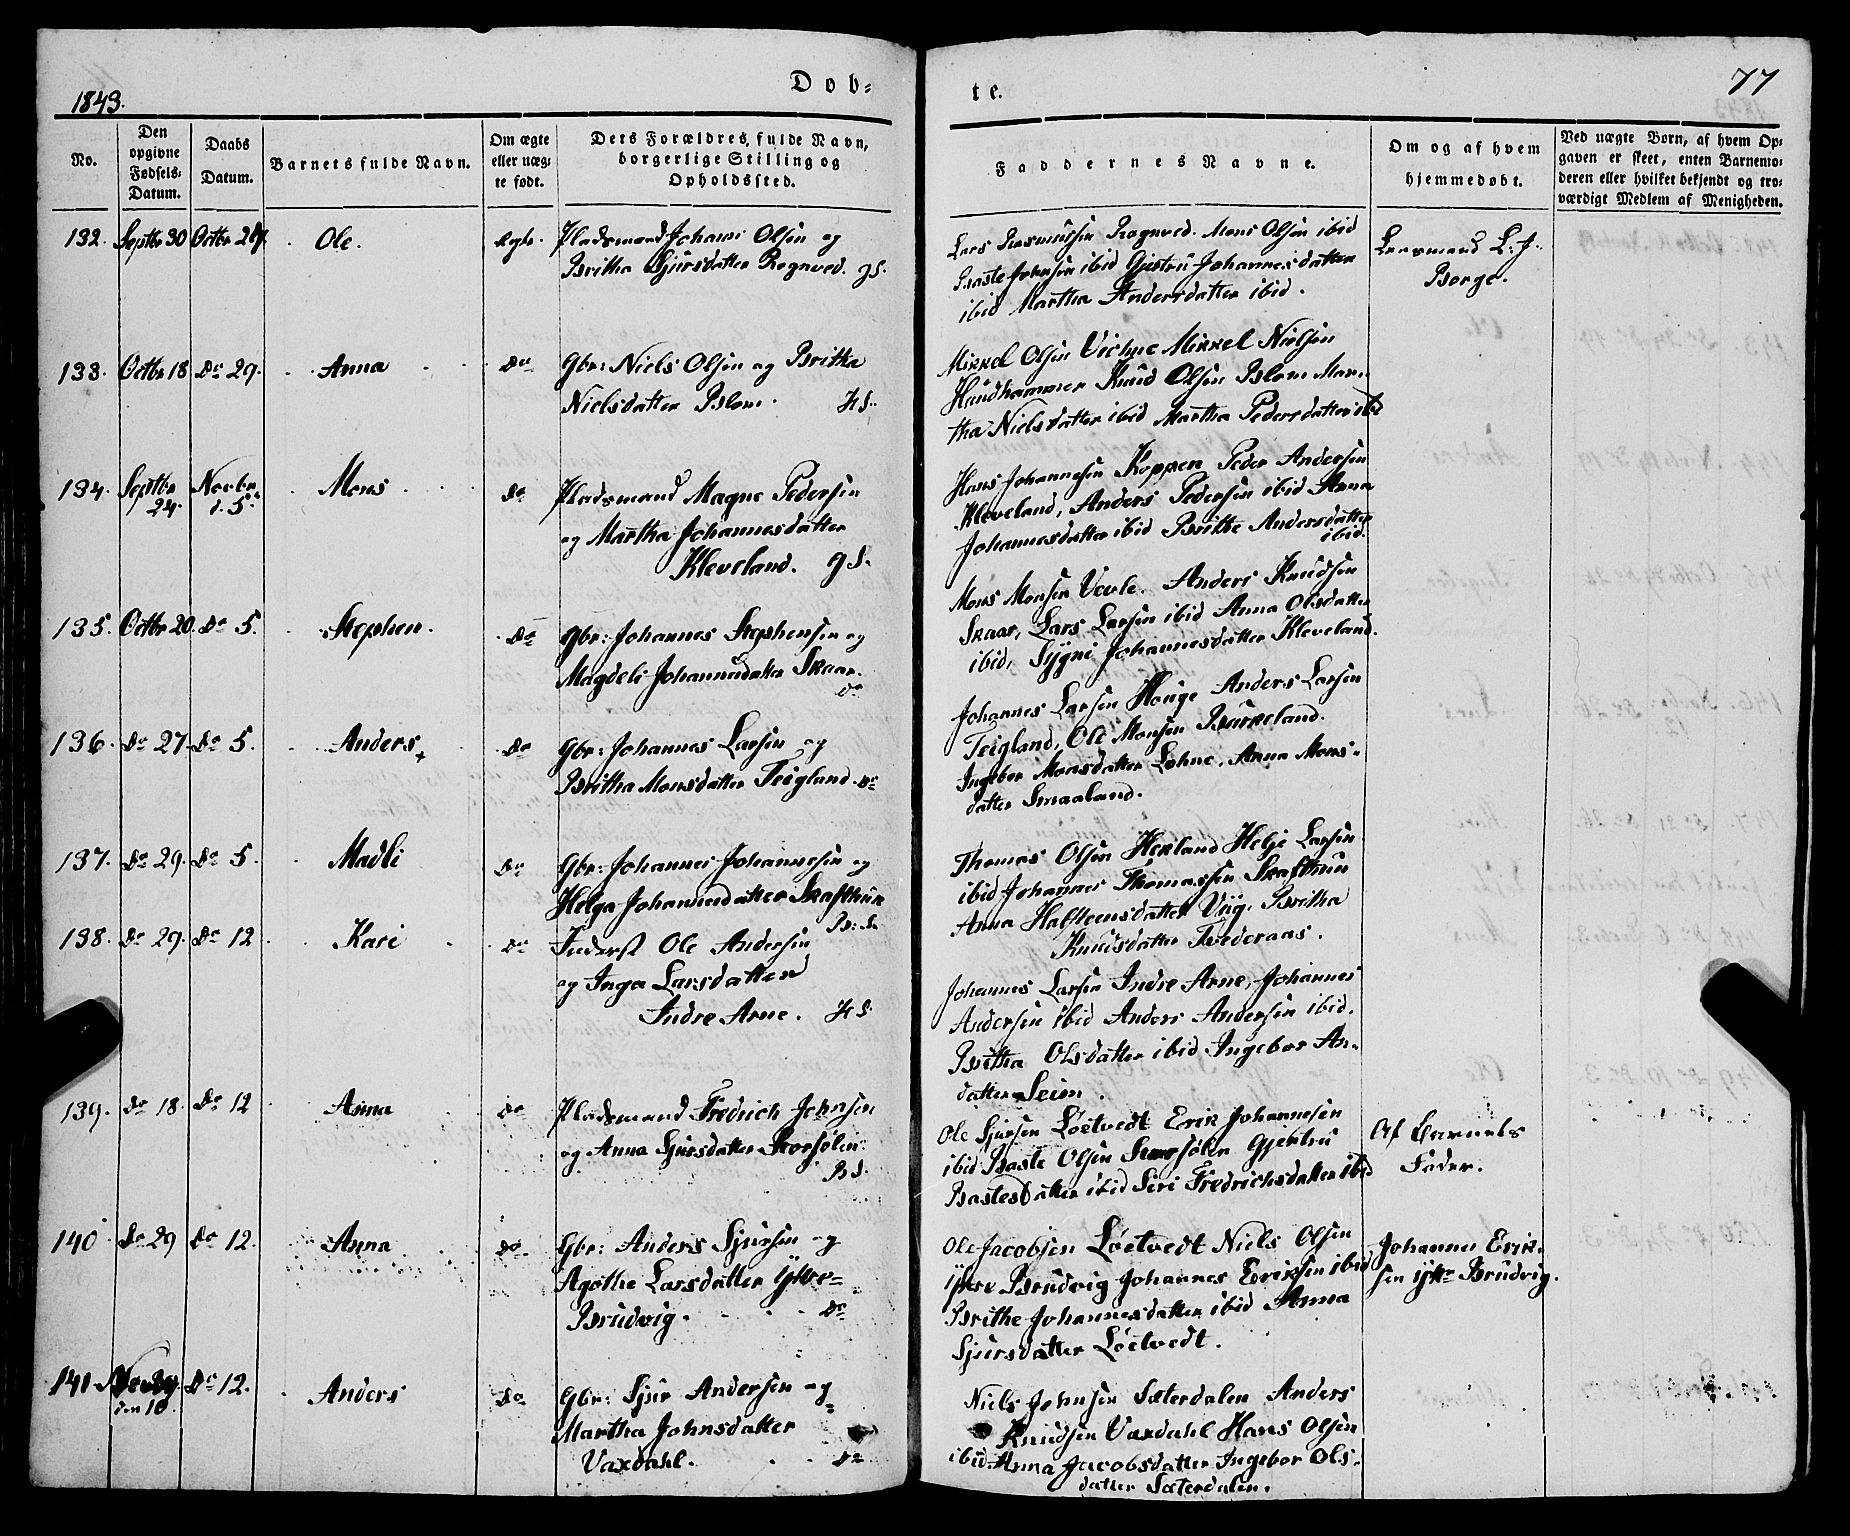 Døb-
te.
77
1843.
No.
Den
opgivne
Fødsels-
Datum.
Daabs
Datum.
Barnets fulde Navn.
Om ægte
eller uæg-
te født.
Dets Forældres fulde Navn,
borgerlige Stilling og
Opholdssted.
Faddernes Navne.
Om og af hvem
hjemmedøbt.
Ved uægte Børn, af hvem Op-
gaven er skeet, enten Barnemo-
deren eller hvilket bekjendt og tro-
værdigt Medlem af Menigheden.
132. Septbr 30 Octbr 29. Ole. Ægte. Pladsmand Johans Olsen og
Britha Sjursdatter Rognved. g S.
Lars Rasmussen Rognved. Mons Olsen ibid
Baste Johnsen ibid Gjertru Johannesdatter
ibid Martha Andersdatter ibid.
Lensmand L. J.
Borge.
133. Octbr 18 Do 29. Anna Do Gbr: Niels Olsen og Britha
Nielsdatter Blom. H S.
Mikkel Olsen Mikkel Nielsen
Hundhammer Knud Olsen Blom Mar-
tha Nielsdatter ibid Martha Pedersdatter ibd
134. Septbr Novbr Mons Do Pladsmand Magne Pedersen
24. d. 5.
og Martha Johannesdatter
Kleveland. g S.
Hans Johannesen Koppen Peder Andersen
Kleveland, Anders Pedersen ibid Anna
Johannesdatter ibid Brithe Andersdatter
ibid.
135. Octbr 20. Do 5. Stephen. Do Gbr: Johannes Stephensen og
Magdeli Johannesdatter Skaar.
Do
Mons Monsen Vevle. Anders Knudsen
Skaar, Lars Larsen ibid Anna Olsdatter
ibid, Sygni Johannesdatter Kleveland.
136. Do 27. Do 5. Anders + Do Gbr: Johannes Larsen og
Britha Monsdatter Teigland. Do
Johannes Larsen Houge Anders Larsen
Teigland, Ole Monsen Burkeland.
Ingebor Monsdatter Lohne, Anna Mons-
datter Smaaland.
137. Do 29. Do 5. Madli Do Gbr: Johannes Johannesen og
Helga Johannesdatter Skafthun
B: S.
Thomas Olsen Herland Helje Larsen
ibid Johannes Thomassen Skafthun
Anna Halsteensdatter Viig. Britha
Knudsdatter Tvederaas.
138. Do 29. Do 12 Kari Do Inderst Ole Andersen
og Inga Larsdatter
Indre Arne. H S.
Johannes Larsen Indre Arne, Johannes
Andersen ibid Anders Andersen ibid.
Britha Olsdatter ibid Ingebor An-
datter Seim.
139. Do 18. Do 12 Anna Do Pladsmand Fredrich Johnsen
og Anna Sjursdatter
B S.
Ole Sjursen Løetvedt Erik Johannesen
ibid Baste Olsen Gjertru
Bastesdatter ibid Siri Fredrichsdatter ibid
Af Barnets
Fader.
140 Do 29 Do 12. Anna Do Gbr: Anders Sjursen og
Agathe Larsdatter Ytre-
Brudvig. Do
Ole Jacobsen Løetvedt Niels Olsen
Ytre Brudvig Johannes Eriksen ibid
Brithe Johannesdatter ibid Anna
Sjursdatter Løetvedt.
Johannes Erik-
sen Ytre Brudvig.
141 Do 12. Anders Do Gbr: Sjur Andersen og
den 10.
Martha Johnsdatter
Vaxdahl. Do
Niels Johnsen Sæterdalen Anders
Knudsen Vaxdahl Hans Olsen
ibid Anna Jacobsdatter Ingebor Ols-
datter Sæterdalen.